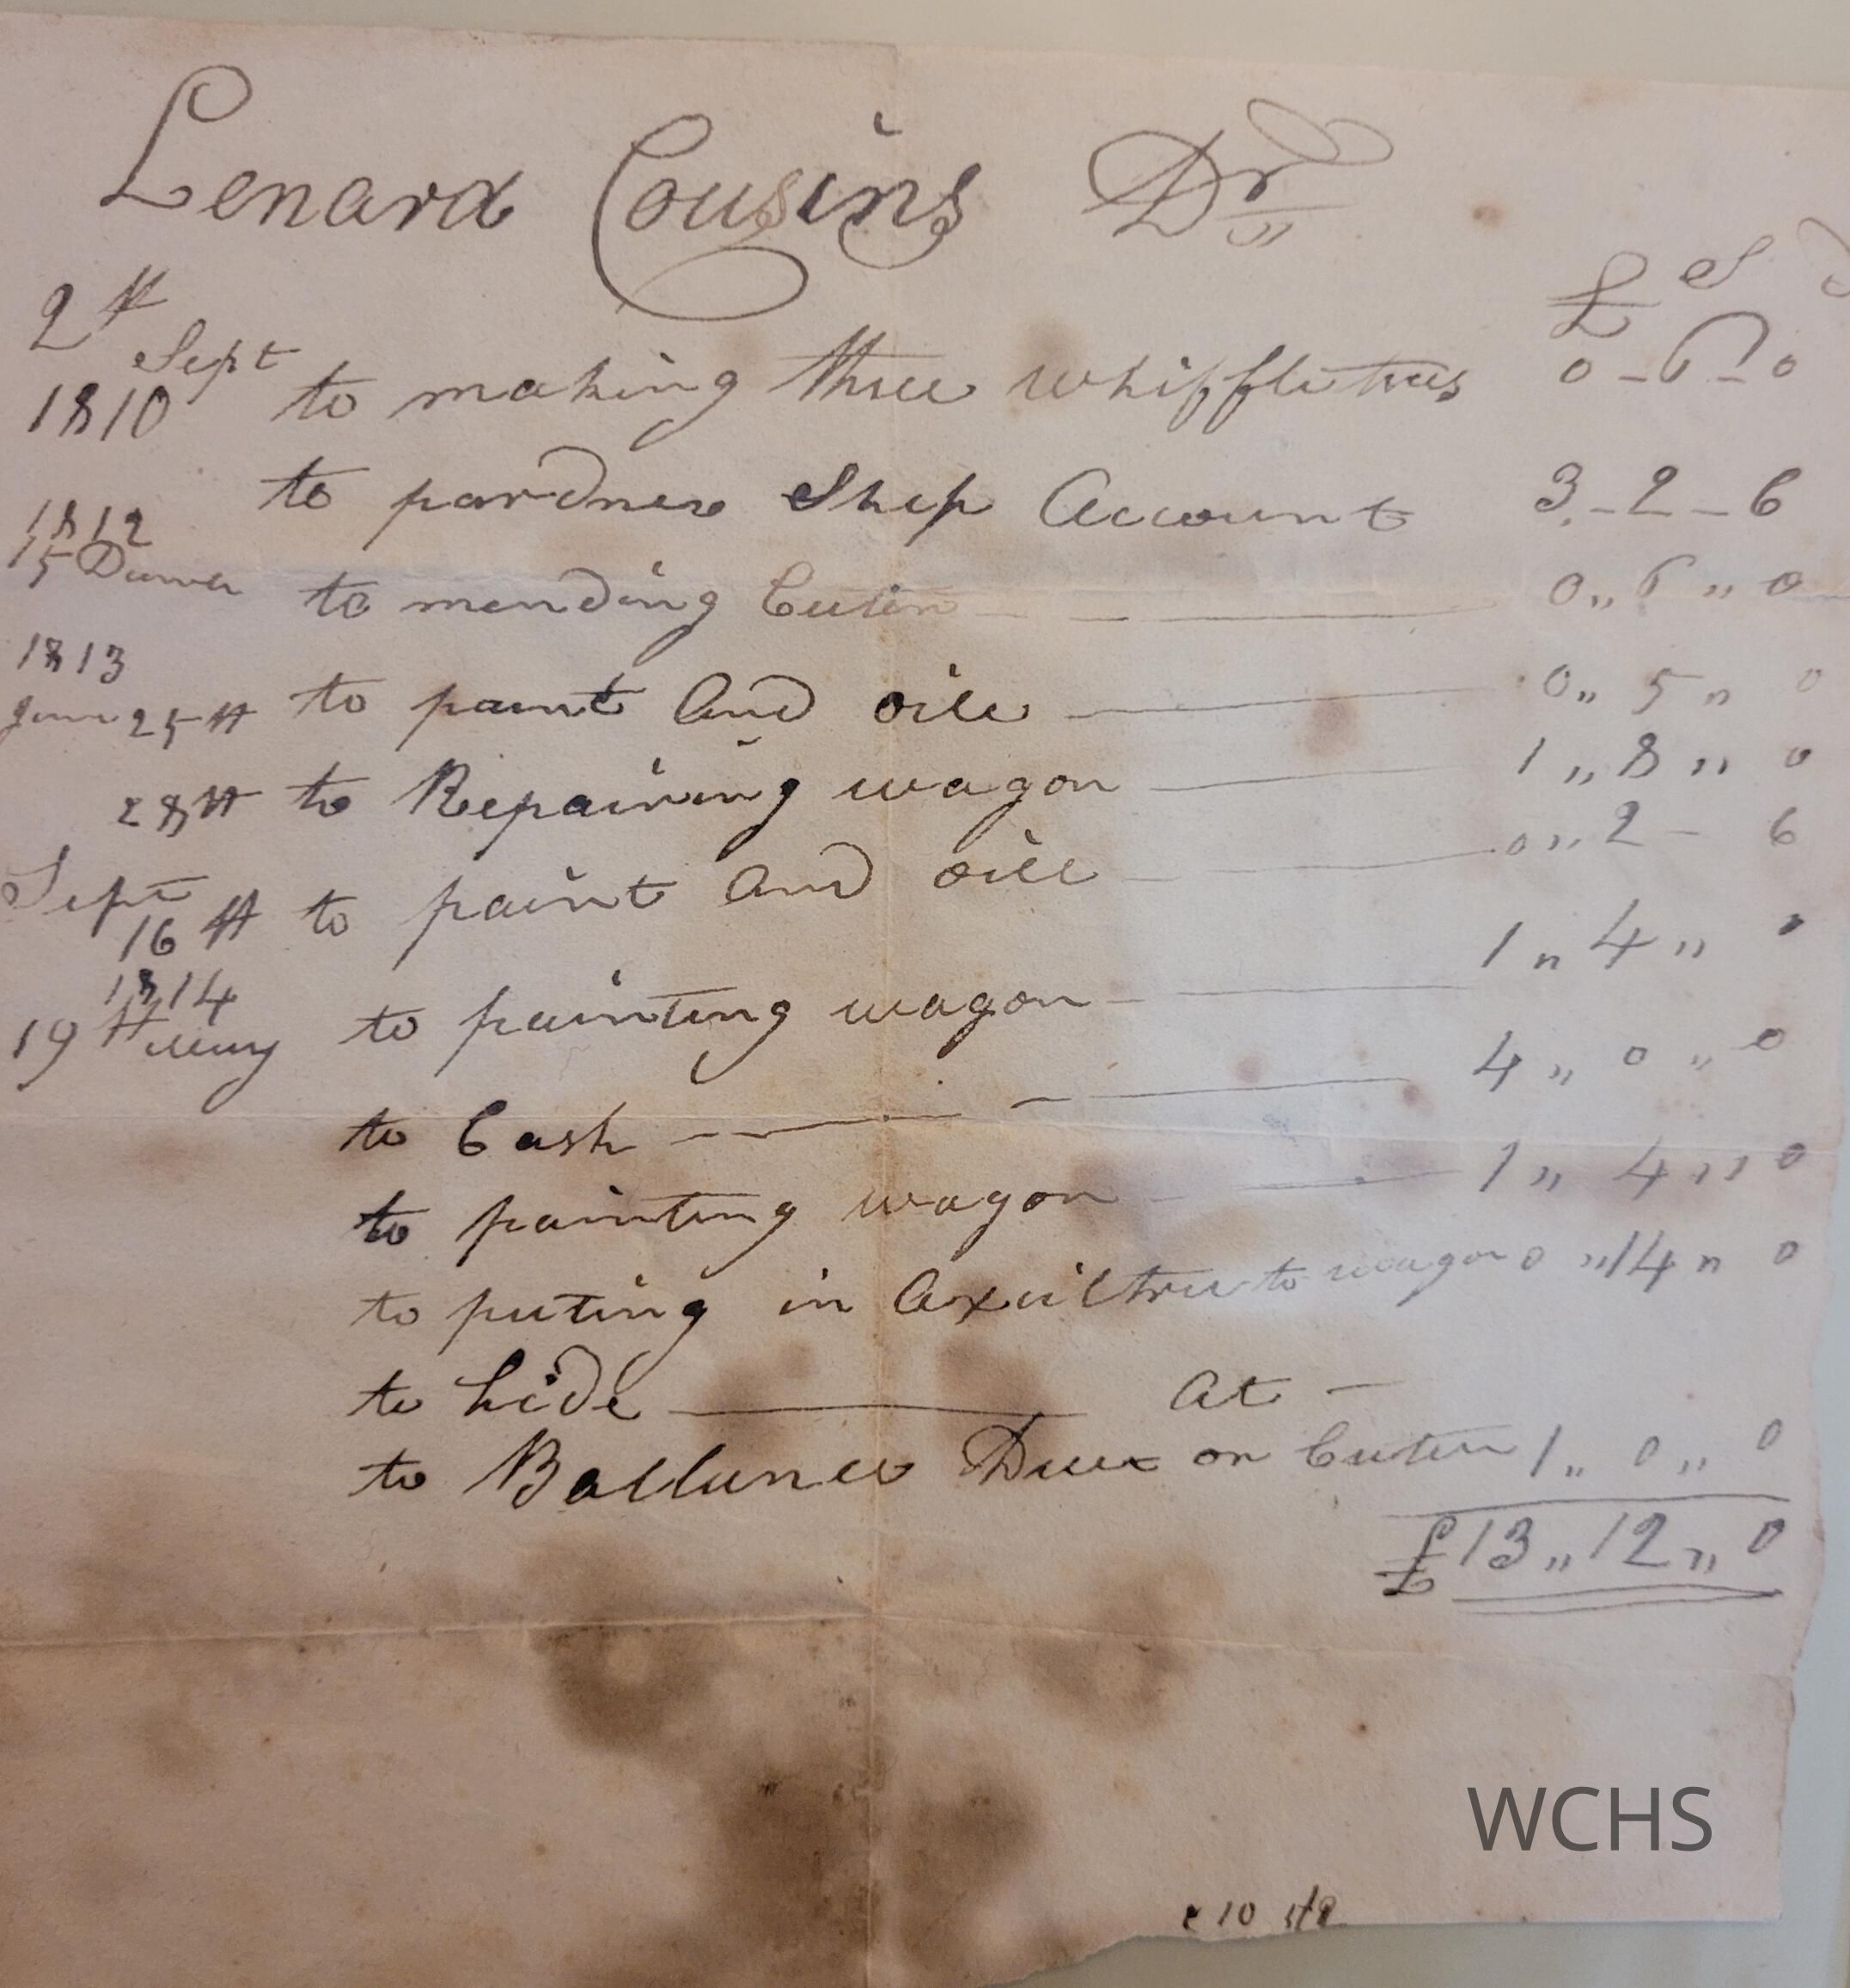 Lenard Cousins Dr
£ S D
2th Sept
1810 to making three whiffletrees 0-6-0
to pardner Ship Account 3-2-6
1812
15 to mending Cuter 0„6„0
1813
June 25th to paint and oile 0„5„0
28th to Repairing wagon 1„8„0
Sept
16th to paint and oill 0„2-6
1814
19th to painting wagon 1„4„0
to Cash 4„0„0
to painting wagon 1„4„0
to puting in Axeiltree to wagon 0„14„0
to hide At
to Ballance Due on Cuter 1„0„0
£13„12„0
WCHS